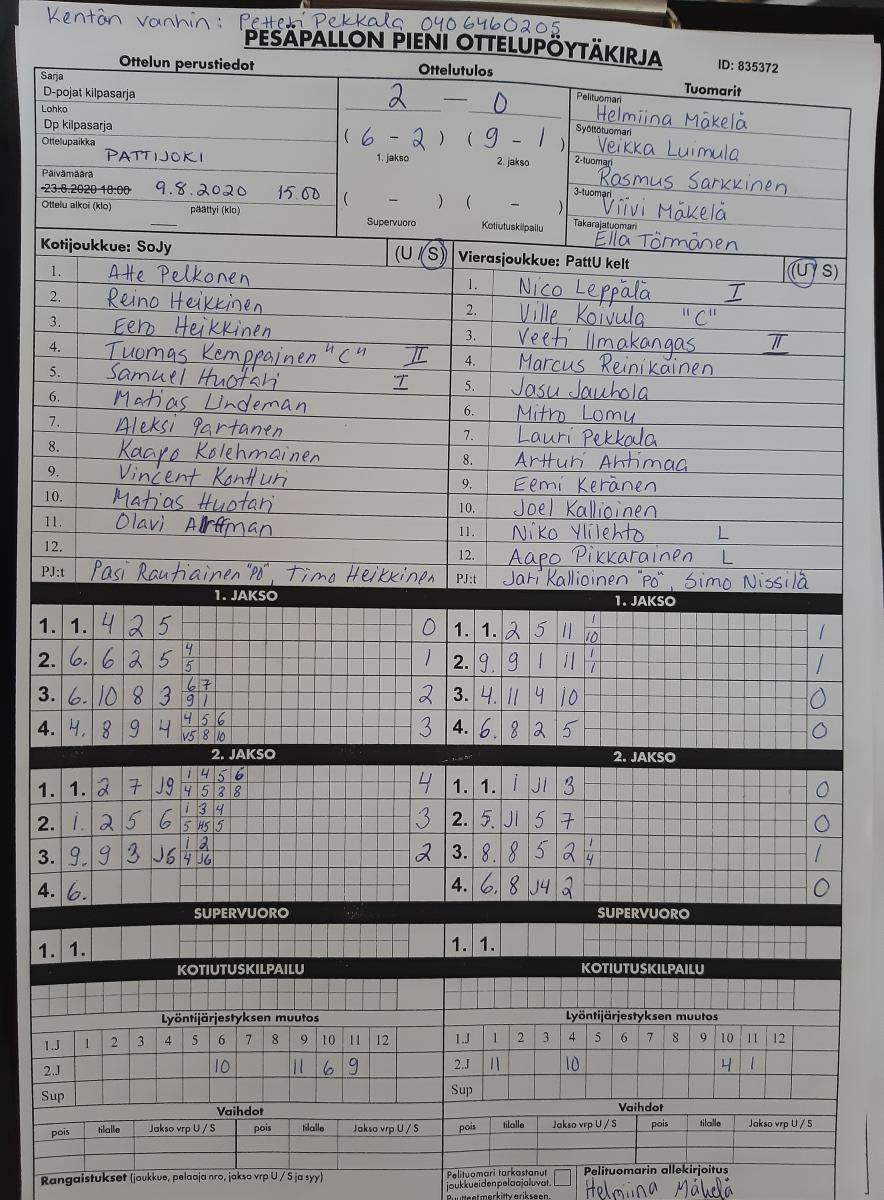 Kentän vanhin: Petteri Pekkala 040 6460205
PESÄPALLON PIENI OTTELUPÖYTÄKIRJA
ID: 835372
Ottelun perustiedot
Sarja
D-pojat kilpasarja
Lohko
Dp kilpasarja
Ottelupaikka
PATTIJOKI
Päivämäärä
23.8.2020 18:00 9.8.2020 15.00
Ottelu alkoi (klo) päättyi (klo)
Ottelutulos
2 — 0
(6 - 2) (9 - 1)
1. jakso 2. jakso
( - ) ( - )
Supervuoro Kotiutuskilpailu
Tuomarit
Pelituomari
Helmiina Mäkelä
Syöttötuomari
Veikka Luimula
2-tuomari
Rasmus Sarkkinen
3-tuomari
Viivi Mäkelä
Takarajatuomari
Ella Törmänen
Kotijoukkue: SoJy (U / S)
1. Atte Pelkonen
2. Reino Heikkinen
3. Eero Heikkinen
4. Tuomas Kemppainen "C" II
5. Samuel Huotari I
6. Matias Lindeman
7. Aleksi Partanen
8. Kaapo Kolehmainen
9. Vincent Kontturi
10. Matias Huotari
11. Olavi
12.
PJ:t Pasi Rautiainen "PO", Timo Heikkinen
Vierasjoukkue: PattU kelt (U / S)
1. Nico Leppälä I
2. Ville Koivula "C"
3. Veeti Ilmakangas II
4. Marcus Reinikainen
5. Jasu Jauhola
6. Mitro Lomu
7. Lauri Pekkala
8. Artturi Ahtimaa
9. Eemi Keränen
10. Joel Kallioinen
11. Niko Ylilehto L
12. Aapo Pikkarainen L
PJ:t Jari Kallioinen "PO", Simo Nissilä
1. JAKSO
1. 1. 4 2 5 0
2. 6. 6 2 5 4 5 1
3. 6. 10 8 3 6 7 9 1 2
4. 4. 8 9 4 4 5 6 V5 8 10 3
2. JAKSO
1. 1. 2 7 J9 1 4 5 6 4 5 3 8 4
2. 1. 2 5 6 1 3 4 5 H5 5 3
3. 9. 9 3 J6 1 2 4 J6 2
4. 6.
SUPERVUORO
1. 1.
KOTIUTUSKILPAILU
1. JAKSO
1. 1. 2 5 11 1 10 1
2. 9. 9 1 11 1 1 1
3. 4. 11 4 10 0
4. 6. 8 2 5 0
2. JAKSO
1. 1. 1 J1 3 0
2. 5. J1 5 7 0
3. 8. 8 5 2 1 4 1
4. 6. 8 J4 2 0
SUPERVUORO
1. 1.
KOTIUTUSKILPAILU
Lyöntijärjestyksen muutos
1.J 1 2 3 4 5 6 7 8 9 10 11 12
2.J 10 11 6 9
Sup
Vaihdot
pois tilalle Jakso vrp U / S pois tilalle Jakso vrp U / S
Lyöntijärjestyksen muutos
1.J 1 2 3 4 5 6 7 8 9 10 11 12
2.J 11 10 4 1
Sup
Vaihdot
pois tilalle Jakso vrp U / S pois tilalle Jakso vrp U / S
Rangaistukset (joukkue, pelaaja nro, jakso vrp U / S ja syy)
Pelituomari tarkastanut
joukkueidenpelaajaluvat.
Puutteet merkitty erikseen.
Pelituomarin allekirjoitus
Helmiina Mäkelä